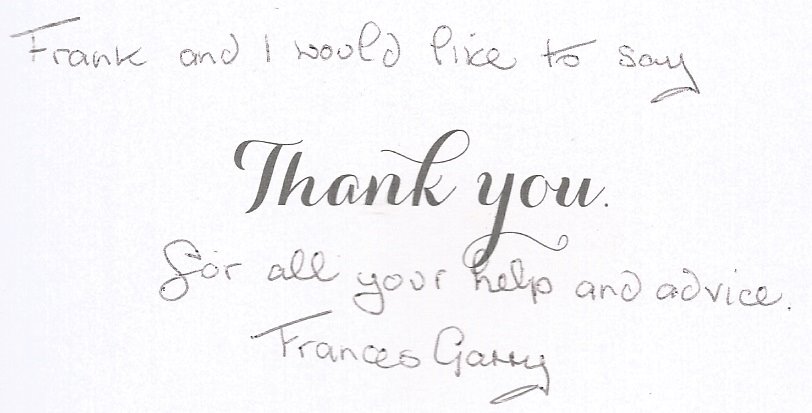 Frank and I would like to say
Thank you.
for all your help and advice.
Frances Garry